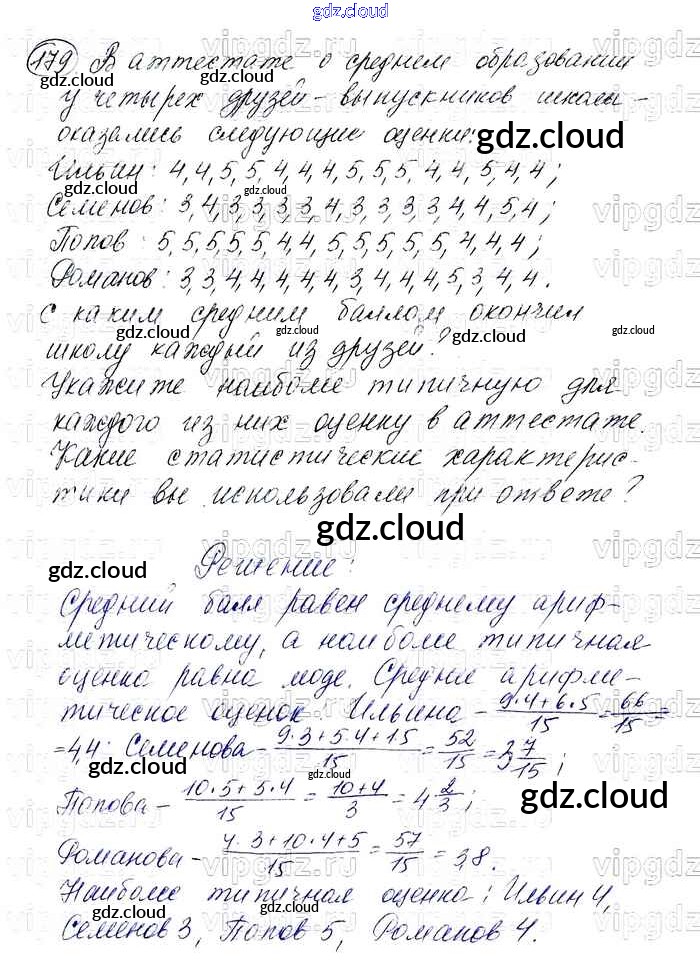 gdz.cloud
179 В аттестате о среднем образовании
у четырех друзей - выпускников школы -
оказались следующие оценки:
Ильин: 4,4,5,5,4,4,4,5,5,5,4,4,5,4,4;
Семенов: 3,4,3,3,3,3,4,3,3,3,3,4,4,5,4;
Попов: 5,5,5,5,5,4,4,5,5,5,5,5,4,4,4;
Романов: 3,3,4,4,4,4,4,3,4,4,4,5,3,4,4.
С каким средним баллом окончил
школу каждый из друзей?
Укажите наиболее типичную для
каждого из них оценку в аттестате.
Какие статистические характерис-
тики вы использовали при ответе?
Решение:
Средний балл равен среднему ариф-
метическому, а наиболее типичная
оценка равна моде. Среднее арифме-
тическое оценок Ильина - (9·4+6·5)/15 = 66/15 =
= 4,4; Семенова - (9·3+5·4+15)/15 = 52/15 = 3 7/15;
Попова - (10·5+5·4)/15 = (10+4)/3 = 4 2/3;
Романова - (4·3+10·4+5)/15 = 57/15 = 3,8.
Наиболее типичная оценка: Ильин 4,
Семенов 3, Попов 5, Романов 4.